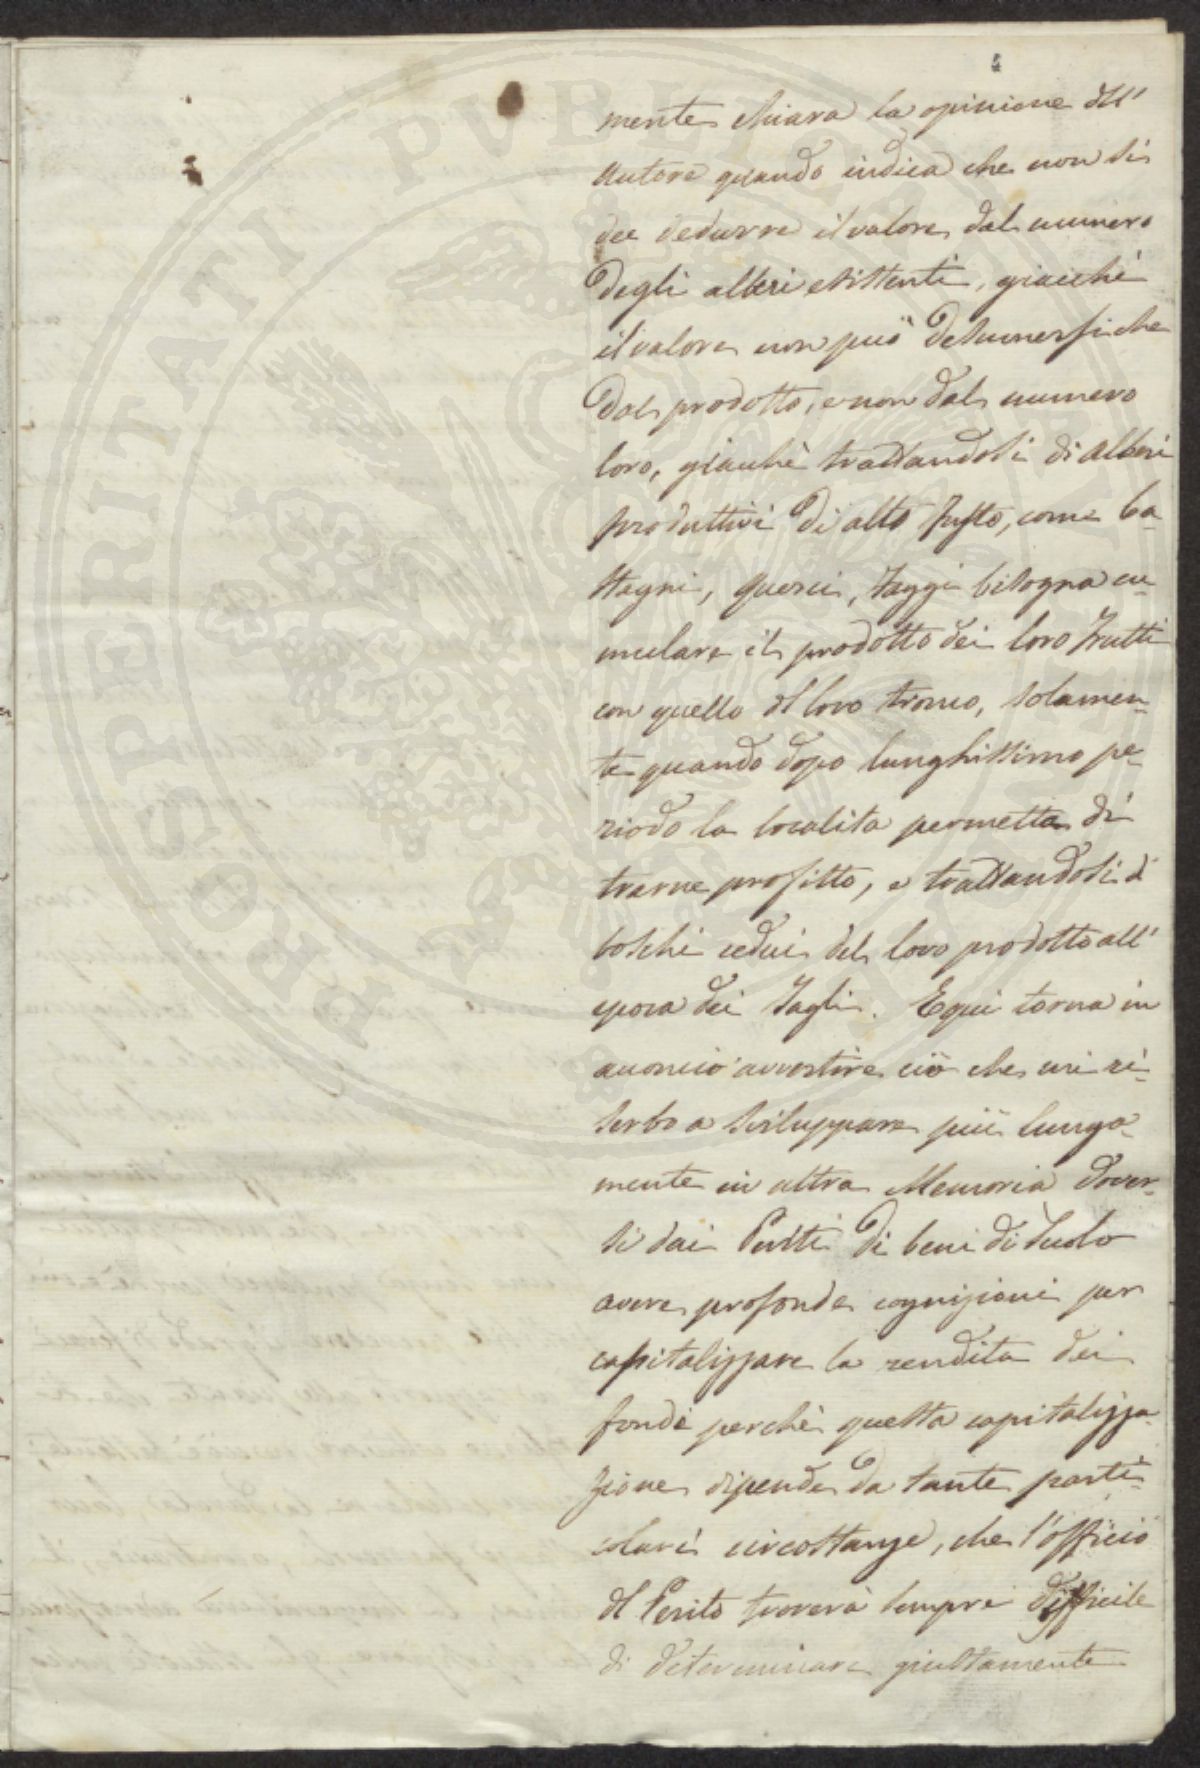 mente chiara la opinione dell'
Autore quando indica che non si
dee dedurre il valore dal numero
degli alberi esistenti, giacchè
il valore non può desumersi che
dal prodotto, e non dal numero
loro, giacchè trattandosi di alberi
produttivi di alto fusto, come Ca-
stagni, querci, faggi bisogna cu-
mulare il prodotto dei loro frutti
con quello del loro tronco, solamen-
te quando dopo lunghissimo pe-
riodo la localita permetta di
trarne profitto, e trattandosi di
boschi cedui del loro prodotto all'
epoca dei tagli. E qui torna in
acconcio avvertire ciò che mi ri-
serbo a sviluppare più lunga-
mente in altra Memoria dover-
si dai Periti di beni di suolo
avere profonde cognizioni per
capitalizzare la rendita dei
fondi perchè questa capitalizza-
zione dipende da tante parti-
colari circostanze, che l'officio
del Perito troverà sempre difficile
di determinare giustamente
PROSPERITATI PUBLICAE